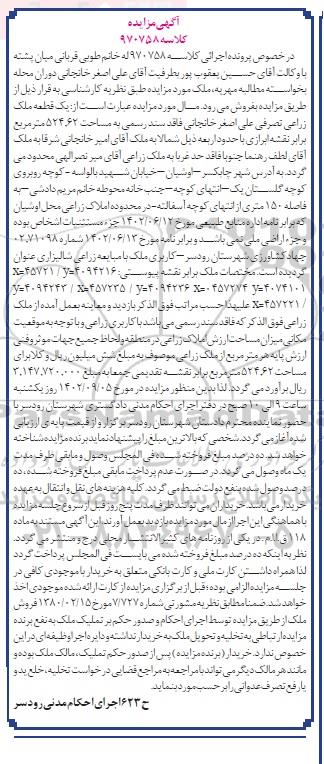 آگهی مزایده
کلاسه ۹۷۰۷۵۸
در خصوص پرونده اجرائی کلاسه ۹۷۰۷۵۸ له خانم طوبی قربانی میان پشته
با وکالت آقای حسین یعقوب پور بطرفیت آقای علی اصغر خانجانی دوران محله
بخواسته مطالبه مهریه، ملک مورد مزایده طبق نظریه کارشناسی به قرار ذیل از
طریق مزایده بفروش می رود. مال مورد مزایده عبارت است از: یک قطعه ملک
زراعی تصرفی علی اصغر خانجانی فاقد سند رسمی به مساحت ۵۲۴.۶۲ متر مربع
برابر نقشه ابرازی با حدود اربعه ذیل شمالا به ملک آقای امیر خانجانی شرقا به ملک
آقای لطف رهنما جنوبا فاقد حد غربا به ملک زراعی آقای میر نصرالهی محدود می
گردد. به آدرس شهر چابکسر – اوشیان – خیابان شهید بالواسه - کوچه روبروی
کوچه گلستان یک – انتهای کوچه – جنب خانه محوطه خانم مریم دادشی – به
فاصله ۱۵۰ متری از انتهای کوچه آسفالته - در محدوده املاک زراعی محل اوشیان
که برابر نامه اداره منابع طبیعی مورخ ۱۴۰۲/۰۶/۱۲ جزء مستثنیات اشخاص بوده
و جزء اراضی ملی نمی باشد و برابر نامه مورخ ۱۴۰۲/۰۶/۱۳ شماره ۰۲.۷۱۰۹۸
جهاد کشاورزی شهرستان رودسر – کاربری ملک با مبایعه زراعی شالیزاری عنوان
گردیده است. مختصات ملک برابر نقشه پیوستی: X=۴۵۷۲۱ / Y=۴۰۹۴۲۱۶
X=۴۵۷۲۳۵ / Y=۴۰۹۴۲۴۳ / X=۴۵۷۲۷۴ Y=۴۰۹۴۲۳۶ Y=۴۰۷۴۱۰۱
/ X=۴۵۷۲۲۱ علیهذا حسب مراتب فوق الذکر بازدید و معاینه بعمل آمده از ملک
زراعی فوق الذکر که فاقد سند رسمی می باشد با کاربری زراعی و با توجه به موقعیت
مکانی میزان مساحت ارزش املاک زراعی در منطقه و لحاظ جمیع جهات موثر و فنی
ارزش پایه هر متر مربع از ملک زراعی موصوف به مبلغ شش میلیون ریال و کلا برای
مساحت ۵۲۴.۶۲ متر مربع برابر نقشه تقدیمی جمعا به مبلغ ۳,۱۴۷,۷۲۰,۰۰۰
ریال برآورد می گردد. لذا بدین منظور مزایده در مورخ ۱۴۰۲/۰۹/۰۵ روز یکشنبه
ساعت ۹ الی ۱۰ صبح در دفتر اجرای احکام مدنی دادگستری شهرستان رودسر با
حضور نماینده محترم دادستان شهرستان رودسر برگزار و از قیمت پایه ی ارزیابی
شده آغاز می گردد. شخصی که بالاترین مبلغ را پیشنهاد نماید برنده مزایده شناخته
خواهد شد. ده درصد مبلغ فروخته شده فی المجلس وصول و مابقی ظرف مدت
یک ماه وصول می گردد. در صورت عدم پرداخت مابقی مبلغ فروخته شده، ده
درصد وصول شده بنفع دولت ضبط می گردد. کلیه هزینه های نقل و انتقال به عهده
خریدار می باشد. خریداران می توانند ظرف مدت پنج روز قبل از شروع جلسه مزایده
با هماهنگی این اجرا از مال مورد مزایده بازدید بعمل آورند. این آگهی مستند به ماده
۱۱۸ ق.ا.م. در یکی از روزنامه های کثیر الانتشار محلی درج و منتشر می گردد.
نظر به اینکه ده درصد مبلغ فروخته شده می بایست فی المجلس پرداخت گردد
لذا همراه داشتن کارت ملی و کارت بانکی متعلق به خریدار با موجودی کافی در
جلسه مزایده الزامی بوده و قبل از برگزاری مزایده از کارت ارائه شده موجودی اخذ
خواهد شد. ضمنا مطابق نظریه مشورتی شماره ۷/۷۲۷ مورخ ۱۳۸۰/۰۲/۱۵ فروش
ملک از طریق مزایده توسط اجرای احکام و صدور حکم بر تملیک ملک به نفع برنده
مزایده ارتباطی به تخلیه و تحویل ملک به خریدار نداشته و دایره اجرا وظیفه ای در این
خصوص ندارد. خریدار (برنده مزایده) پس از صدور حکم تملیک، مالک ملک بوده و
مانند هر مالک دیگر می تواند با مراجعه به مراجع قضایی درخواست تخلیه، خلع ید و
یا رفع تصرف عدوانی را بر حسب مورد بنماید.
ح ۶۲۳ اجرای احکام مدنی رودسر